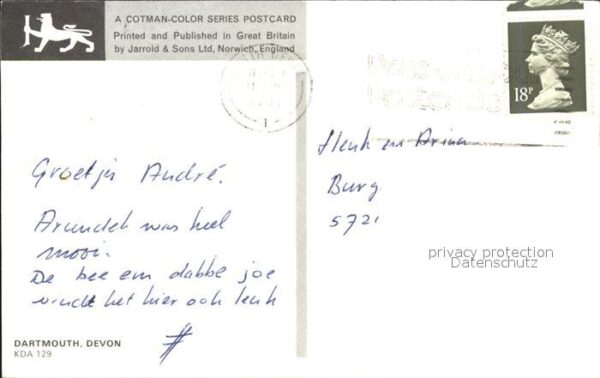 A COTMAN-COLOR SERIES POSTCARD
Printed and Published in Great Britain
by Jarrold & Sons Ltd, Norwich, England
18P
Groetjes André.
Arundel was heel
mooi.
De bee em dabbe joe
vindt het hier ook leuk
DARTMOUTH, DEVON
KDA 129
Henk en Arina
Burg
5721
privacy protection
Datenschutz